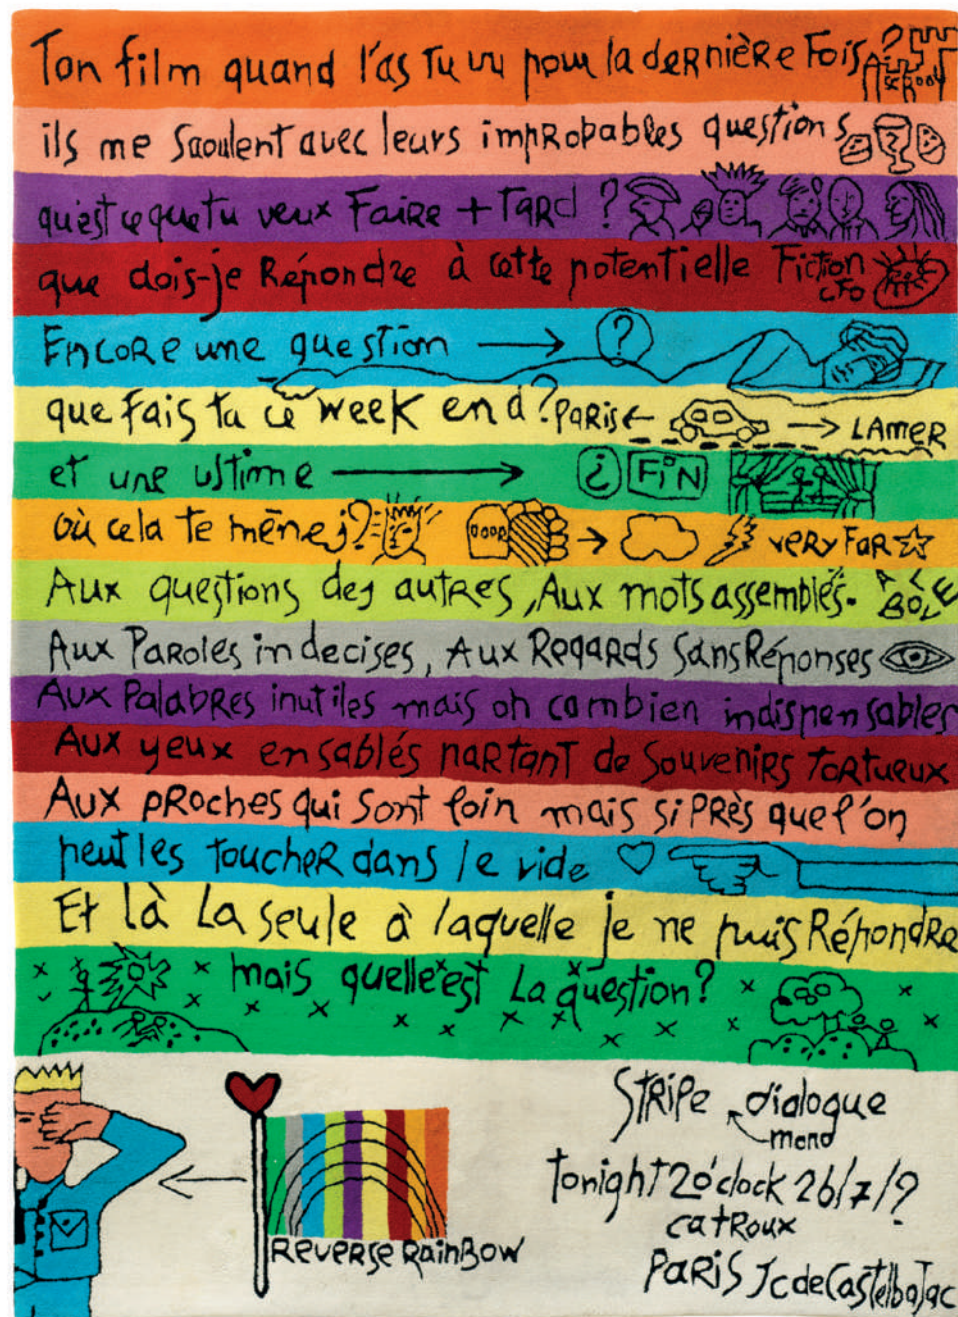 Ton film quand l'as tu vu pour la dernière Fois
ils me saoulent avec leurs improbables questions
qu'est ce que tu veux Faire + Tard ?
que dois-je Répondre à cette potentielle Fiction
Encore une question → ?
que fais tu ce week end ? PARIS ← → LAMER
et une ultime → ¿ FiN
où cela te mène j? → very Far
Aux questions des autres, Aux mots assemblés.
Aux Paroles indecises, Aux Regards Sans Réponses
Aux Palabres inutiles mais oh combien indispensables
Aux yeux ensablés partant de Souvenirs Tortueux
Aux proches qui sont loin mais si PRès que l'on
peut les toucher dans le vide
Et là La seule à laquelle je ne puis Répondre
mais quelle est La question ?
STRIPE dialogue
mono
tonight 2 o'clock 26/7/?
CATROUX
PARIS JC de Castelbajac
REVERSE RainBow